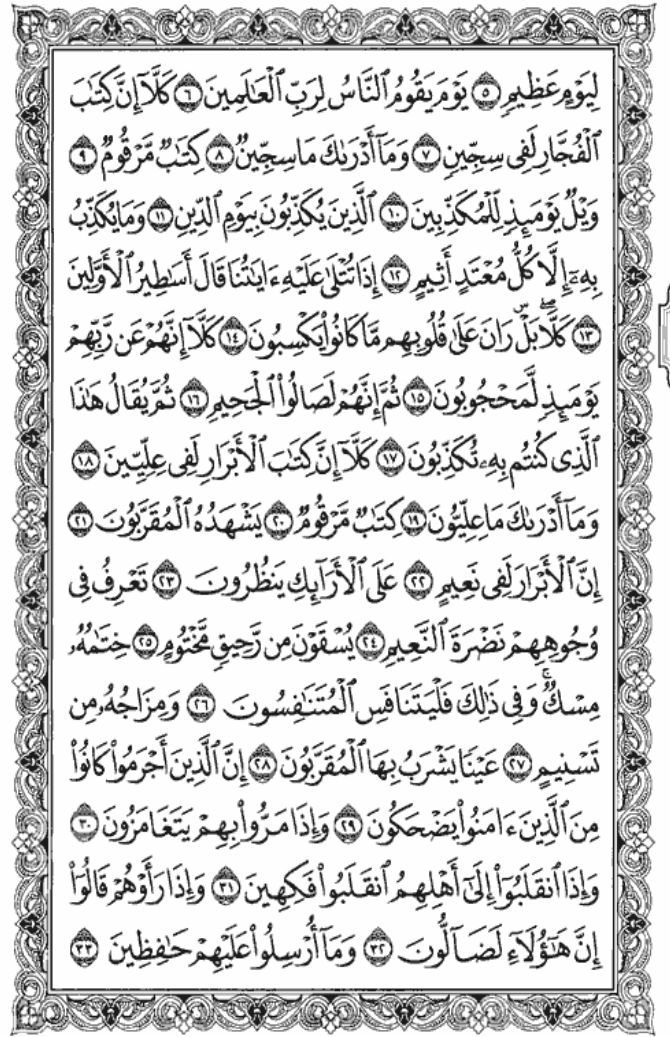 لِيَوْمٍ عَظِيمٍ ٥ يَوْمَ يَقُومُ ٱلنَّاسُ لِرَبِّ ٱلْعَٰلَمِينَ ٦ كَلَّآ إِنَّ كِتَٰبَ
ٱلْفُجَّارِ لَفِى سِجِّينٍ ٧ وَمَآ أَدْرَىٰكَ مَا سِجِّينٌ ٨ كِتَٰبٌ مَّرْقُومٌ ٩
وَيْلٌ يَوْمَئِذٍ لِّلْمُكَذِّبِينَ ١٠ ٱلَّذِينَ يُكَذِّبُونَ بِيَوْمِ ٱلدِّينِ ١١ وَمَا يُكَذِّبُ
بِهِۦٓ إِلَّا كُلُّ مُعْتَدٍ أَثِيمٍ ١٢ إِذَا تُتْلَىٰ عَلَيْهِ ءَايَٰتُنَا قَالَ أَسَٰطِيرُ ٱلْأَوَّلِينَ
١٣ كَلَّا ۖ بَلْ ۜ رَانَ عَلَىٰ قُلُوبِهِم مَّا كَانُوا۟ يَكْسِبُونَ ١٤ كَلَّآ إِنَّهُمْ عَن رَّبِّهِمْ
يَوْمَئِذٍ لَّمَحْجُوبُونَ ١٥ ثُمَّ إِنَّهُمْ لَصَالُوا۟ ٱلْجَحِيمِ ١٦ ثُمَّ يُقَالُ هَٰذَا
ٱلَّذِى كُنتُم بِهِۦ تُكَذِّبُونَ ١٧ كَلَّآ إِنَّ كِتَٰبَ ٱلْأَبْرَارِ لَفِى عِلِّيِّينَ ١٨
وَمَآ أَدْرَىٰكَ مَا عِلِّيُّونَ ١٩ كِتَٰبٌ مَّرْقُومٌ ٢٠ يَشْهَدُهُ ٱلْمُقَرَّبُونَ ٢١
إِنَّ ٱلْأَبْرَارَ لَفِى نَعِيمٍ ٢٢ عَلَى ٱلْأَرَآئِكِ يَنظُرُونَ ٢٣ تَعْرِفُ فِى
وُجُوهِهِمْ نَضْرَةَ ٱلنَّعِيمِ ٢٤ يُسْقَوْنَ مِن رَّحِيقٍ مَّخْتُومٍ ٢٥ خِتَٰمُهُۥ
مِسْكٌ ۚ وَفِى ذَٰلِكَ فَلْيَتَنَافَسِ ٱلْمُتَنَٰفِسُونَ ٢٦ وَمِزَاجُهُۥ مِن
تَسْنِيمٍ ٢٧ عَيْنًا يَشْرَبُ بِهَا ٱلْمُقَرَّبُونَ ٢٨ إِنَّ ٱلَّذِينَ أَجْرَمُوا۟ كَانُوا۟
مِنَ ٱلَّذِينَ ءَامَنُوا۟ يَضْحَكُونَ ٢٩ وَإِذَا مَرُّوا۟ بِهِمْ يَتَغَامَزُونَ ٣٠
وَإِذَا ٱنقَلَبُوٓا۟ إِلَىٰٓ أَهْلِهِمُ ٱنقَلَبُوا۟ فَكِهِينَ ٣١ وَإِذَا رَأَوْهُمْ قَالُوٓا۟
إِنَّ هَٰٓؤُلَآءِ لَضَآلُّونَ ٣٢ وَمَآ أُرْسِلُوا۟ عَلَيْهِمْ حَٰفِظِينَ ٣٣